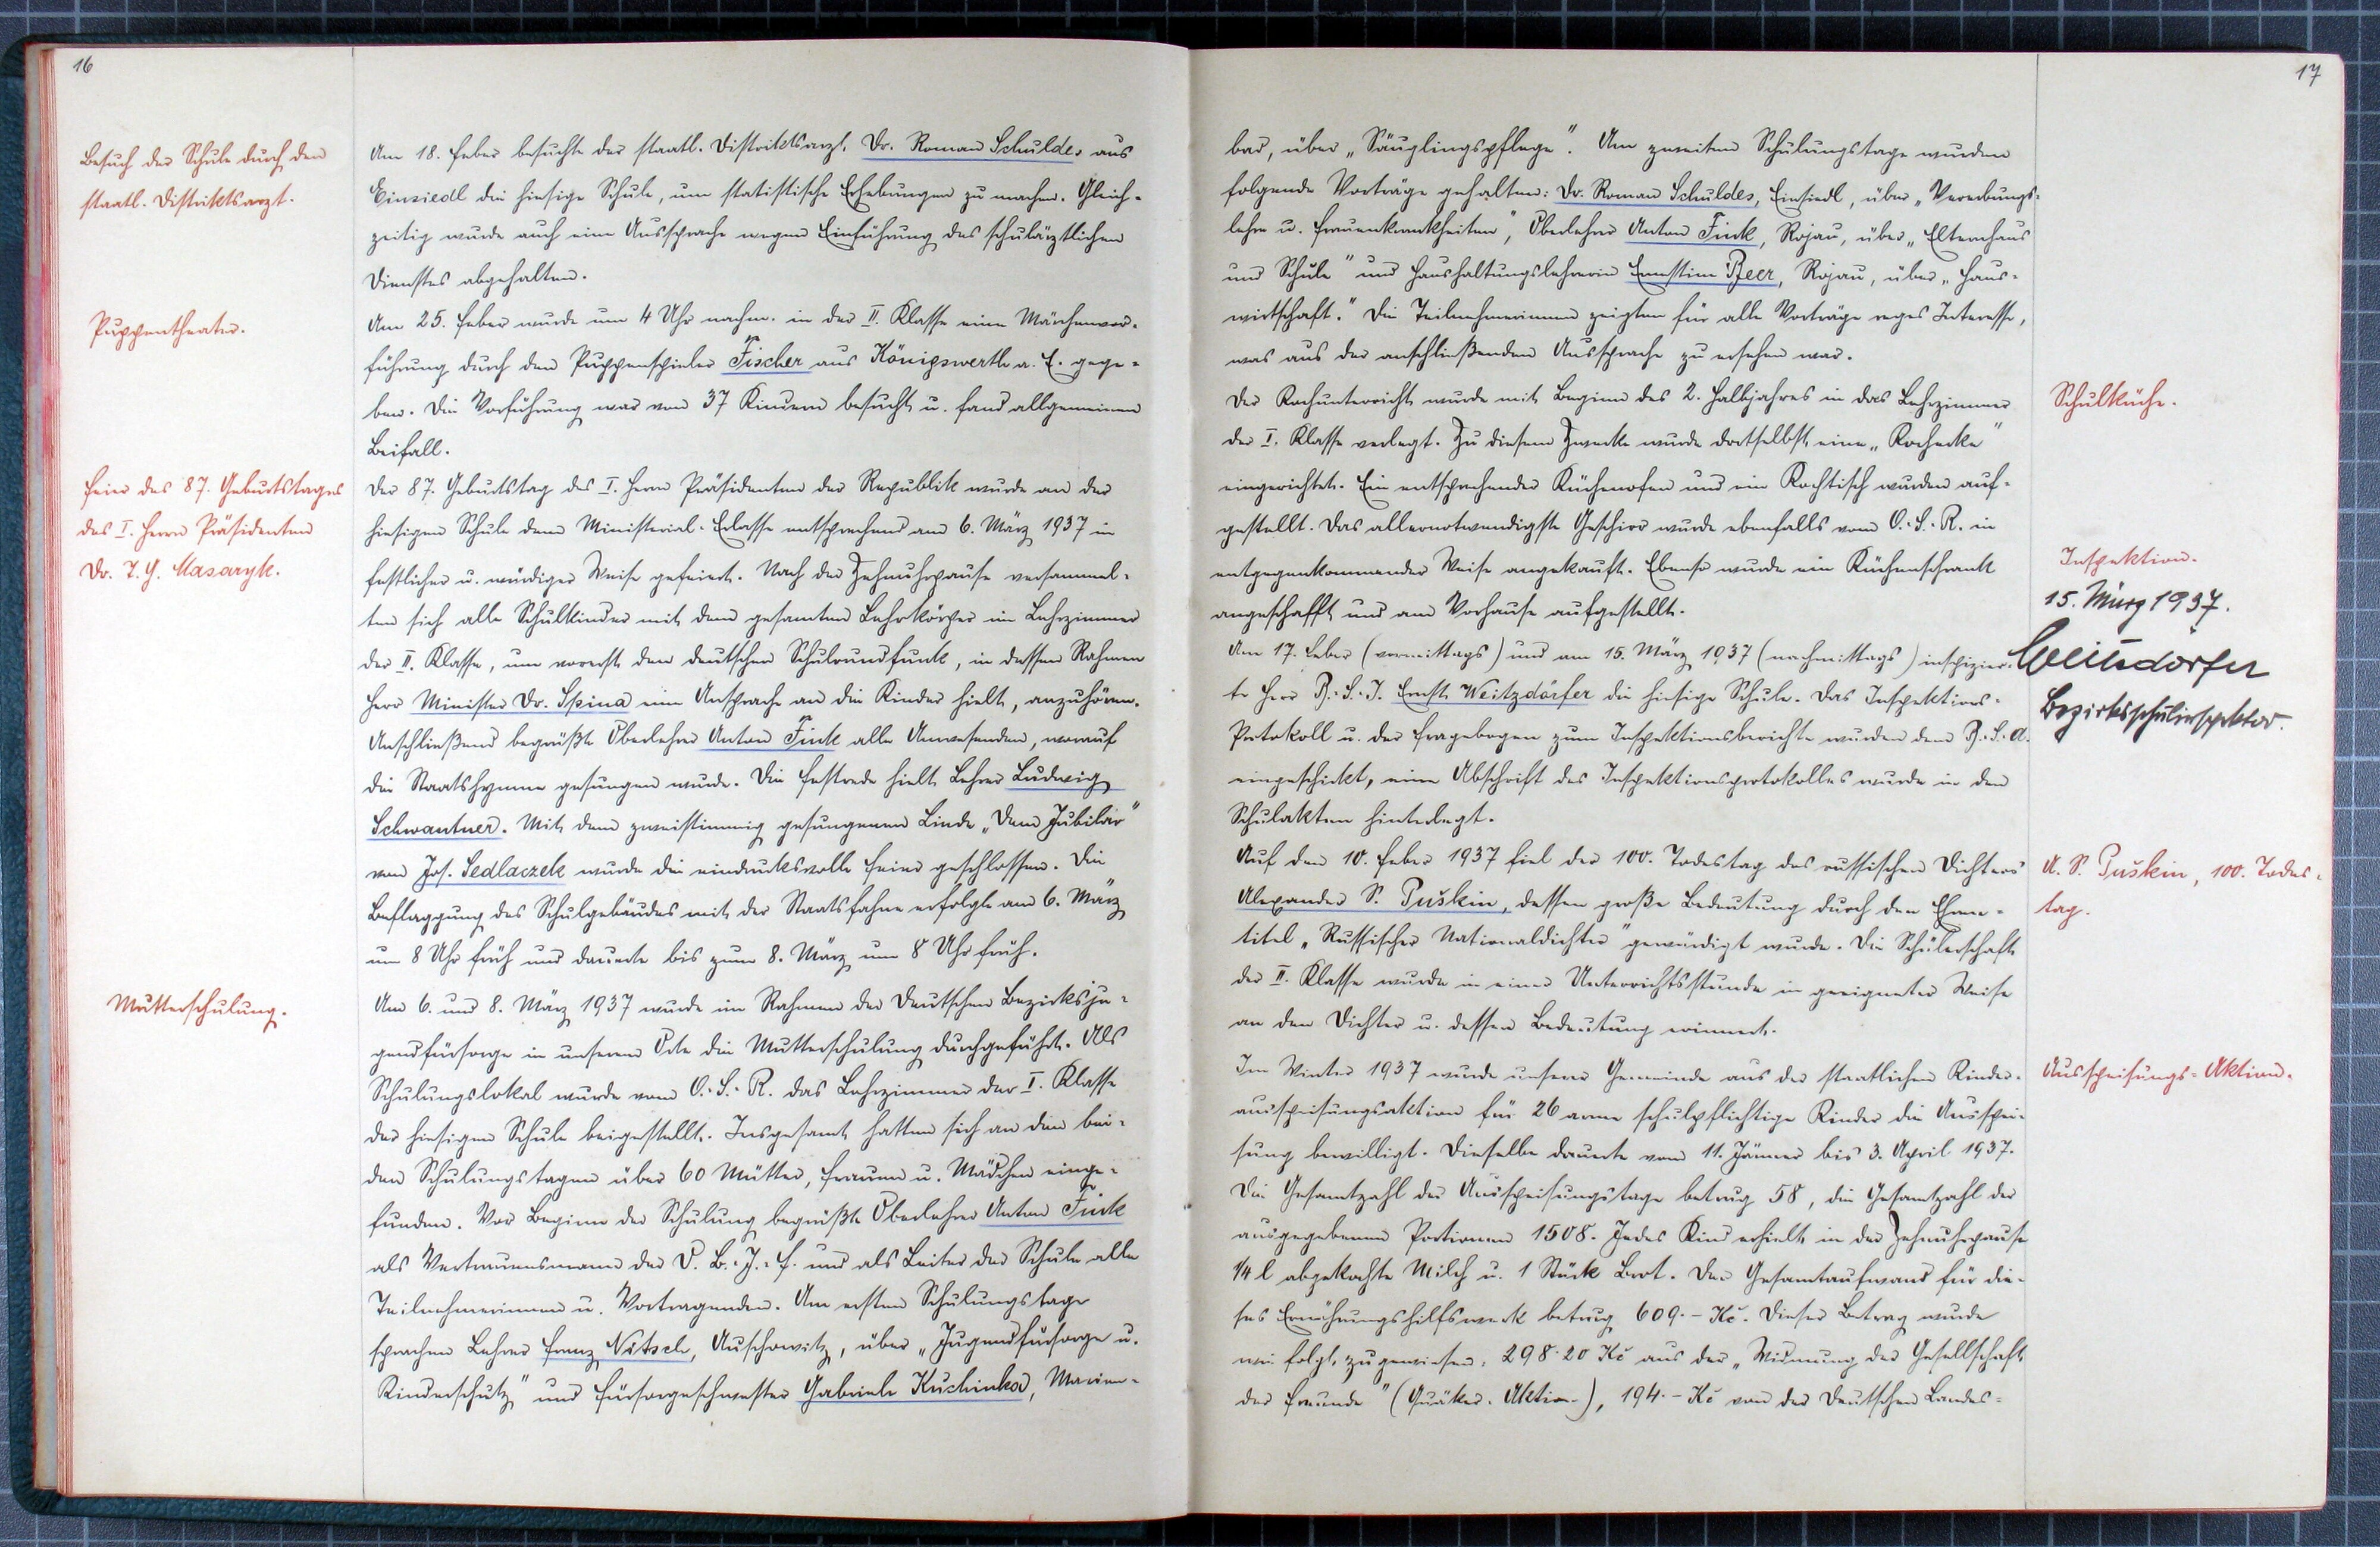 16
Besuch der Schule durch den
staatl. Distriktsarzt.
Am 18. Feber besuchte der staatl. Distriktsarzt, Dr. Roman Schuldes aus
Einsiedl die hiesige Schule, um statistische Erhebungen zu machen. Gleich-
zeitig wurde auch eine Aussprache wegen Einführung des schulärztlichen
Dienstes abgehalten.
Puppentheater.
Am 25. Feber wurde um 4 Uhr nachm. in der II. Klasse eine Märchenvor-
führung durch den Puppenspieler Fischer aus Königswerth a. E. gege-
ben. Die Vorführung war von 37 Kindern besucht u. fand allgemeinen
Beifall.
Feier des 87. Geburtstages
des I. Herrn Präsidenten
Dr. T. G. Masaryk.
Der 87. Geburtstag des I. Herrn Präsidenten der Republik wurde an der
hiesigen Schule dem Ministerial-Erlasse entsprechend am 6. März 1937 in
festlicher u. würdiger Weise gefeiert. Nach der Zehnuhrpause versammel-
ten sich alle Schulkinder mit dem gesamten Lehrkörper im Lehrzimmer
der II. Klasse, um vorerst den deutschen Schulrundfunk, in dessen Rahmen
Herr Minister Dr. Spina eine Ansprache an die Kinder hielt, anzuhören.
Anschließend begrüßte Oberlehrer Anton Fink alle Anwesenden, worauf
die Staatshymne gesungen wurde. Die Festrede hielt Lehrer Ludwig
Schwantner. Mit dem zweistimmig gesungenen Liede „Dem Jubilar"
von Jos. Sedlaczek wurde die eindrucksvolle Feier geschlossen. Die
Beflaggung des Schulgebäudes mit der Staatsfahne erfolgte am 6. März
um 8 Uhr früh und dauerte bis zum 8. März um 8 Uhr früh.
Mutterschulung.
Am 6. und 8. März 1937 wurde im Rahmen der Deutschen Bezirksju-
gendfürsorge in unserem Orte die Mutterschulung durchgeführt. Als
Schulungslokal wurde vom O.-S.-R. das Lehrzimmer der I. Klasse
der hiesigen Schule beigestellt. Insgesamt hatten sich an den bei-
den Schulungstagen über 60 Mütter, Frauen u. Mädchen einge-
funden. Vor Beginn der Schulung begrüßte Oberlehrer Anton Fink
als Vertrauensmann der D. B.-J.-F. und als Leiter der Schule alle
Teilnehmerinnen u. Vortragenden. Am ersten Schulungstage
sprachen Lehrer Franz Nitsch, Auschowitz, über „Jugendfürsorge u.
Kinderschutz" und Fürsorgeschwester Gabriele Kuchinka, Marien-
17
bad, über „Säuglingspflege". Am zweiten Schulungstage wurden
folgende Vorträge gehalten: Dr. Roman Schuldes, Einsiedl, über „Vererbungs-
lehre u. Frauenkrankheiten", Oberlehrer Anton Fink, Rojau, über „Elternhaus
und Schule" und Haushaltungslehrerin Ernestine Beer, Rojau, über „Haus-
wirtschaft." Die Teilnehmerinnen zeigten für alle Vorträge reges Interesse,
was aus der anschließenden Aussprache zu ersehen war.
Der Kochunterricht wurde mit Beginn des 2. Halbjahres in das Lehrzimmer
der I. Klasse verlegt. Zu diesem Zwecke wurde dortselbst eine „Kochecke"
eingerichtet. Ein entsprechender Küchenofen und ein Kochtisch wurden auf-
gestellt. Das allernotwendigste Geschirr wurde ebenfalls vom O.-S.-R. in
entgegenkommender Weise angekauft. Ebenso wurde ein Küchenschrank
angeschafft und am Vorhause aufgestellt.
Schulküche.
Inspektion.
15. März 1937.
Weitzdörfer
Bezirksschulinspektor.
Am 17. Feber (vormittags) und am 15. März 1937 (nachmittags) inspizier-
te Herr B.-S.-I. Ernst Weitzdörfer die hiesige Schule. Das Inspektions-
Protokoll u. der Fragebogen zum Inspektionsberichte wurden dem B.-S.-A.
eingeschickt, eine Abschrift des Inspektionsprotokolles wurde in den
Schulakten hinterlegt.
A. S. Puškin, 100. Todes-
tag.
Auf den 10. Feber 1937 fiel der 100. Todestag des russischen Dichters
Alexander S. Puškin, dessen große Bedeutung durch den Ehren-
titel „Russischer Nationaldichter" gewürdigt wurde. Die Schülerschaft
der II. Klasse wurde in einer Unterrichtsstunde in geeigneter Weise
an den Dichter u. dessen Bedeutung erinnert.
Ausspeisungs-Aktion.
Im Winter 1937 wurde unserer Gemeinde aus der staatlichen Kinder-
ausspeisungsaktion für 26 arme schulpflichtige Kinder die Ausspei-
sung bewilligt. Dieselbe dauerte vom 11. Jänner bis 3. April 1937.
Die Gesamtzahl der Ausspeisungstage betrug 58, die Gesamtzahl der
ausgegebenen Portionen 1508. Jedes Kind erhielt in der Zehnuhrpause
1/4 l abgekochte Milch u. 1 Stück Brot. Der Gesamtaufwand für die-
ses Ernährungshilfswerk betrug 609.- Kč. Dieser Betrag wurde
wie folgt zugewiesen: 298.20 Kč aus der „Widmung der Gesellschaft
der Freunde" (Quäker-Aktion), 194.- Kč von der Deutschen Landes-